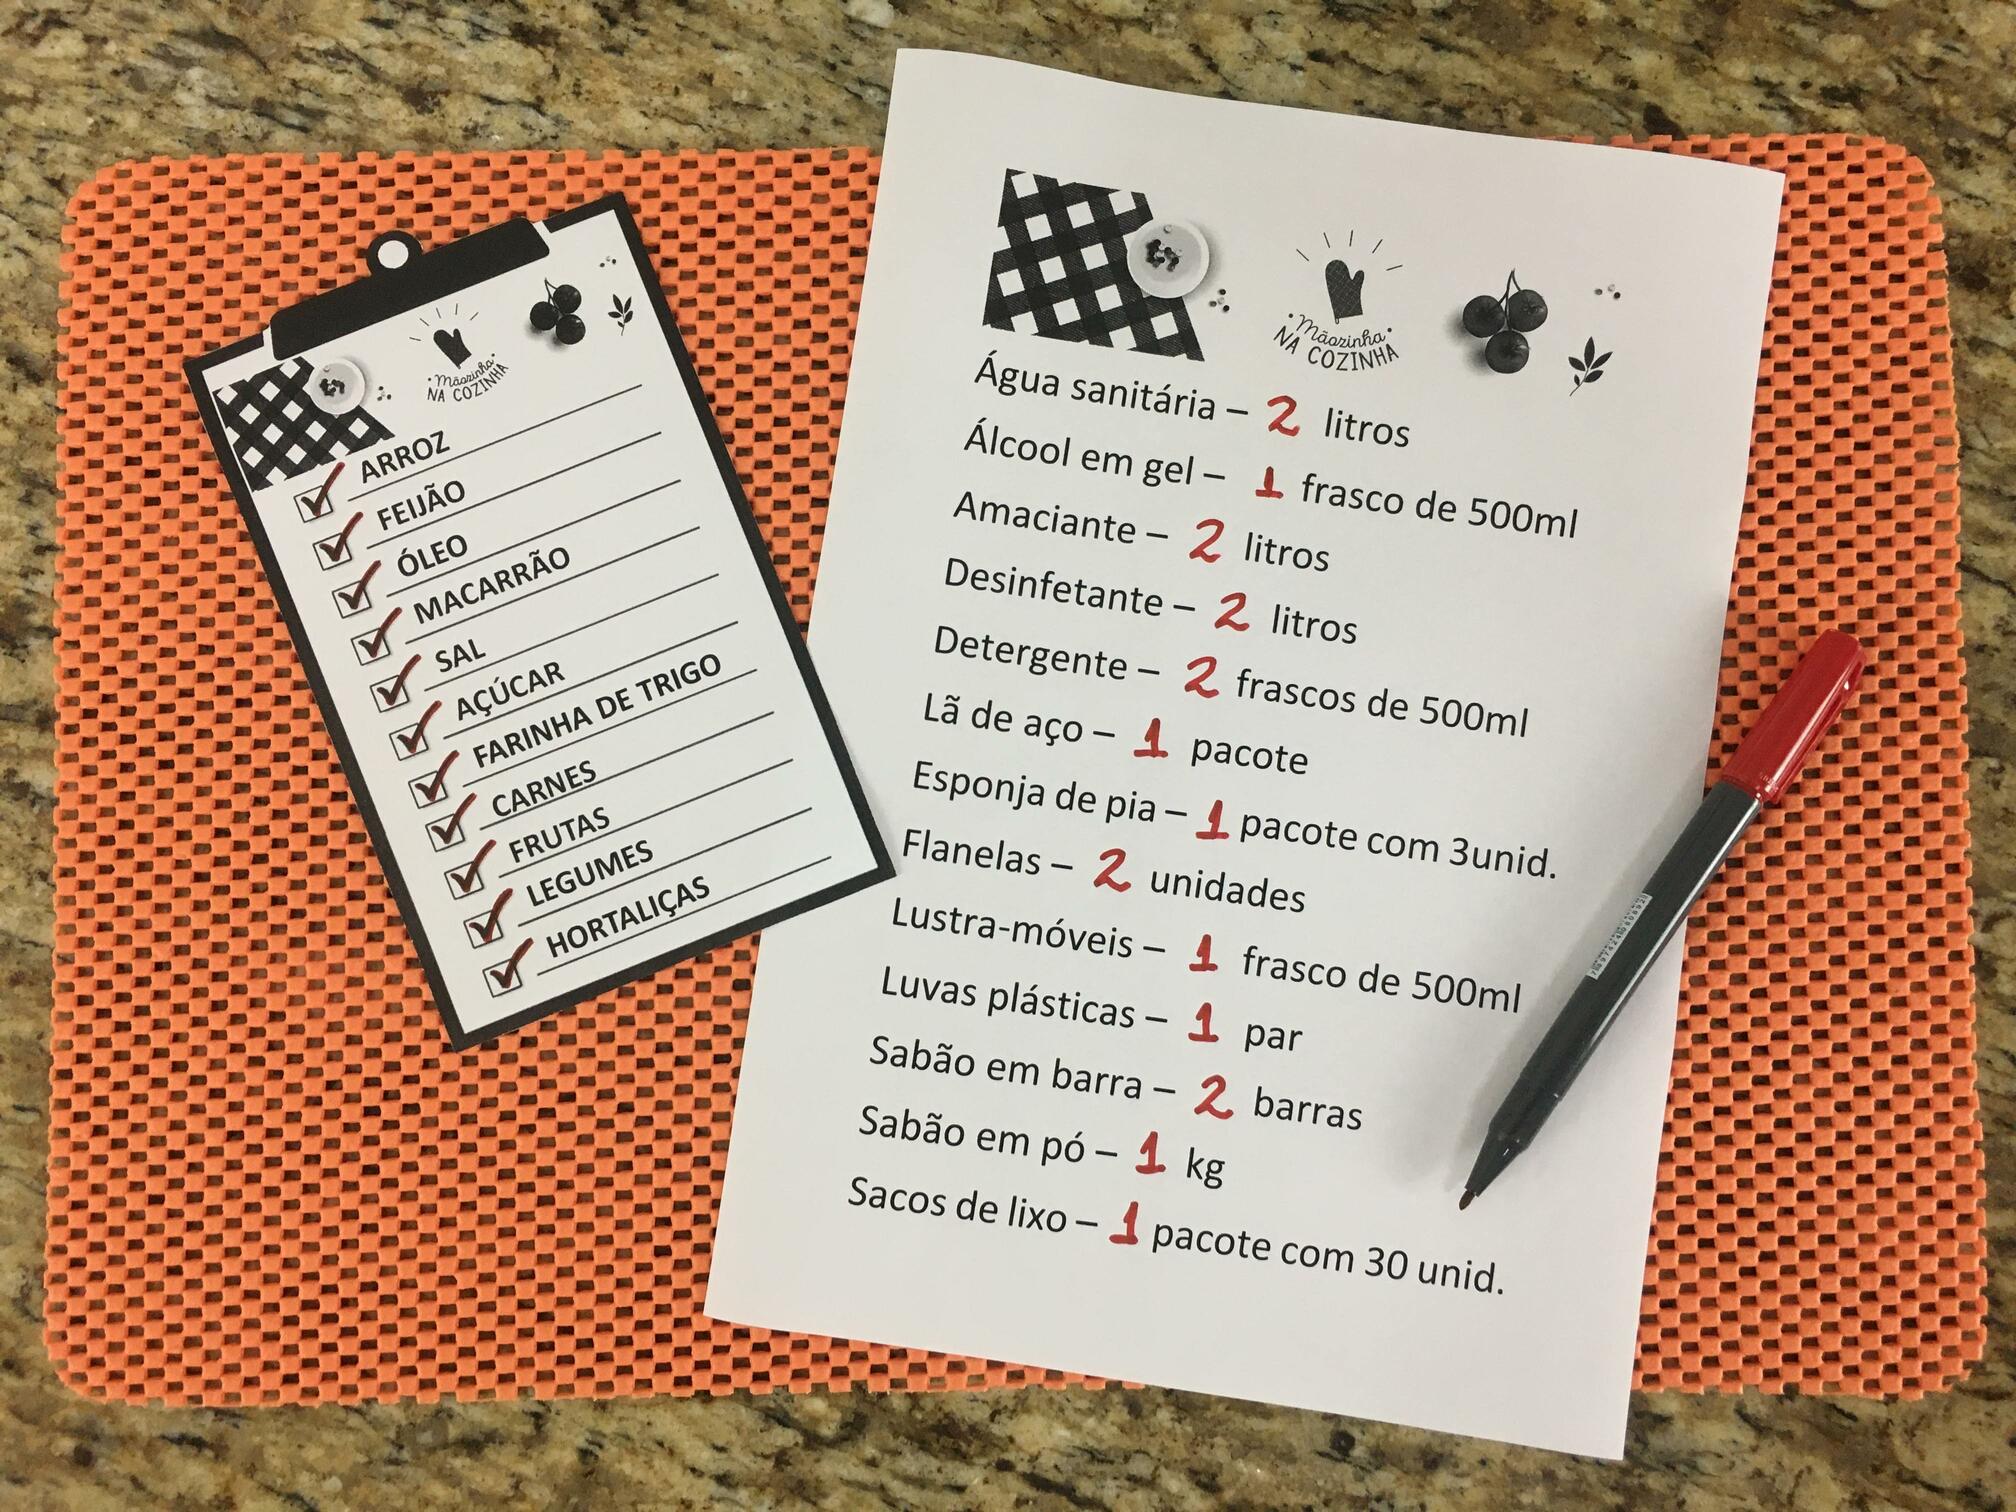 Mãozinha
NA COZINHA
ARROZ
FEIJÃO
ÓLEO
MACARRÃO
SAL
AÇÚCAR
FARINHA DE TRIGO
CARNES
FRUTAS
LEGUMES
HORTALIÇAS
Mãozinha
NA COZINHA
Água sanitária – 2 litros
Álcool em gel – 1 frasco de 500ml
Amaciante – 2 litros
Desinfetante – 2 litros
Detergente – 2 frascos de 500ml
Lã de aço – 1 pacote
Esponja de pia – 1 pacote com 3unid.
Flanelas – 2 unidades
Lustra-móveis – 1 frasco de 500ml
Luvas plásticas – 1 par
Sabão em barra – 2 barras
Sabão em pó – 1 kg
Sacos de lixo – 1 pacote com 30 unid.